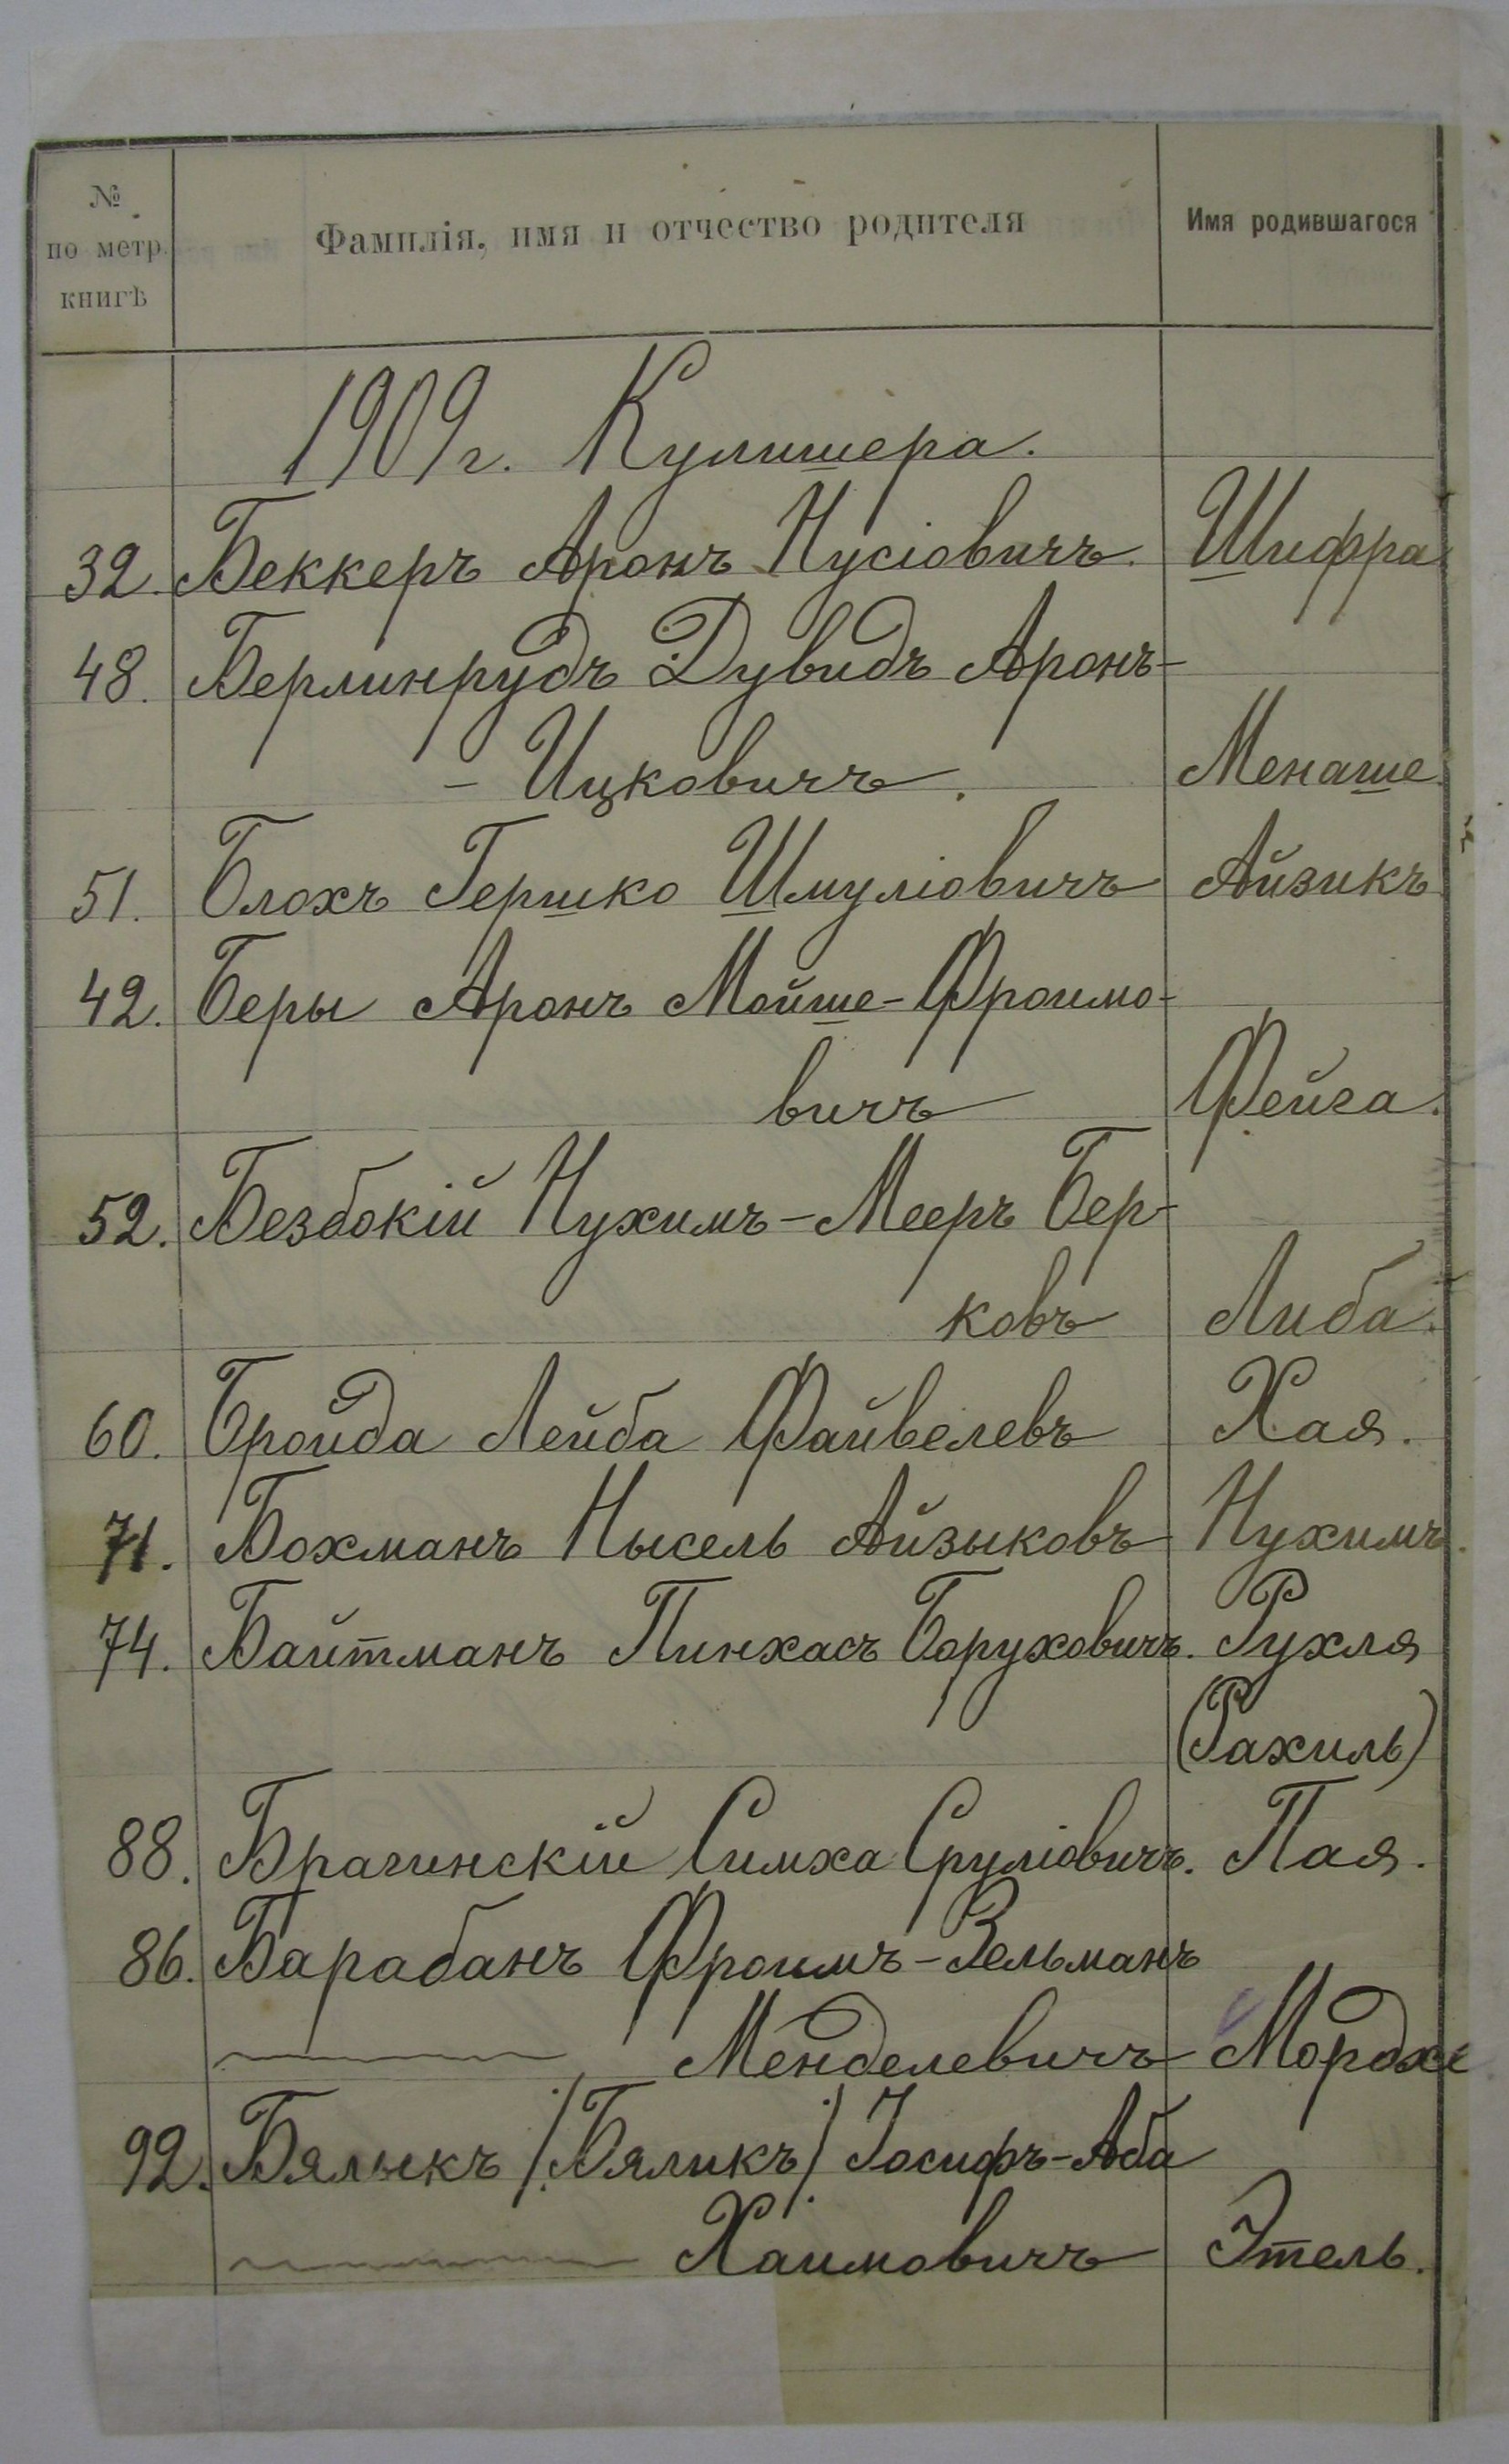 №
по метр.
книгѣ
Фамилія, имя и отчество родителя
Имя родившагося
1909 г. Кулишера.
32. Беккеръ Аронъ Нусіовичъ. Шифра
48. Берлинрудъ Дувидъ Аронъ-
- Ицковичъ. Менаше
51. Блохъ Гершко Шмуліовичъ Айзикъ
42. Беры Аронъ Мойше-Фроимо-
вичъ Фейга.
52. Безбокій Нухимъ-Мееръ Бер-
ковъ Либа.
60. Бройда Лейба Файвелевъ Хая.
71. Бохманъ Нысель Айзыковъ Нухимъ.
74. Байтманъ Пинхасъ Боруховичъ. Рухля
(Рахиль)
88. Брагинскій Симха Сруліовичъ. Пая.
86. Барабанъ Фроимъ-Зельманъ
Менделевичъ Мордхе
92. Бялыкъ /Бяликъ/ Іосифъ-Аба
Хаимовичъ Этель.